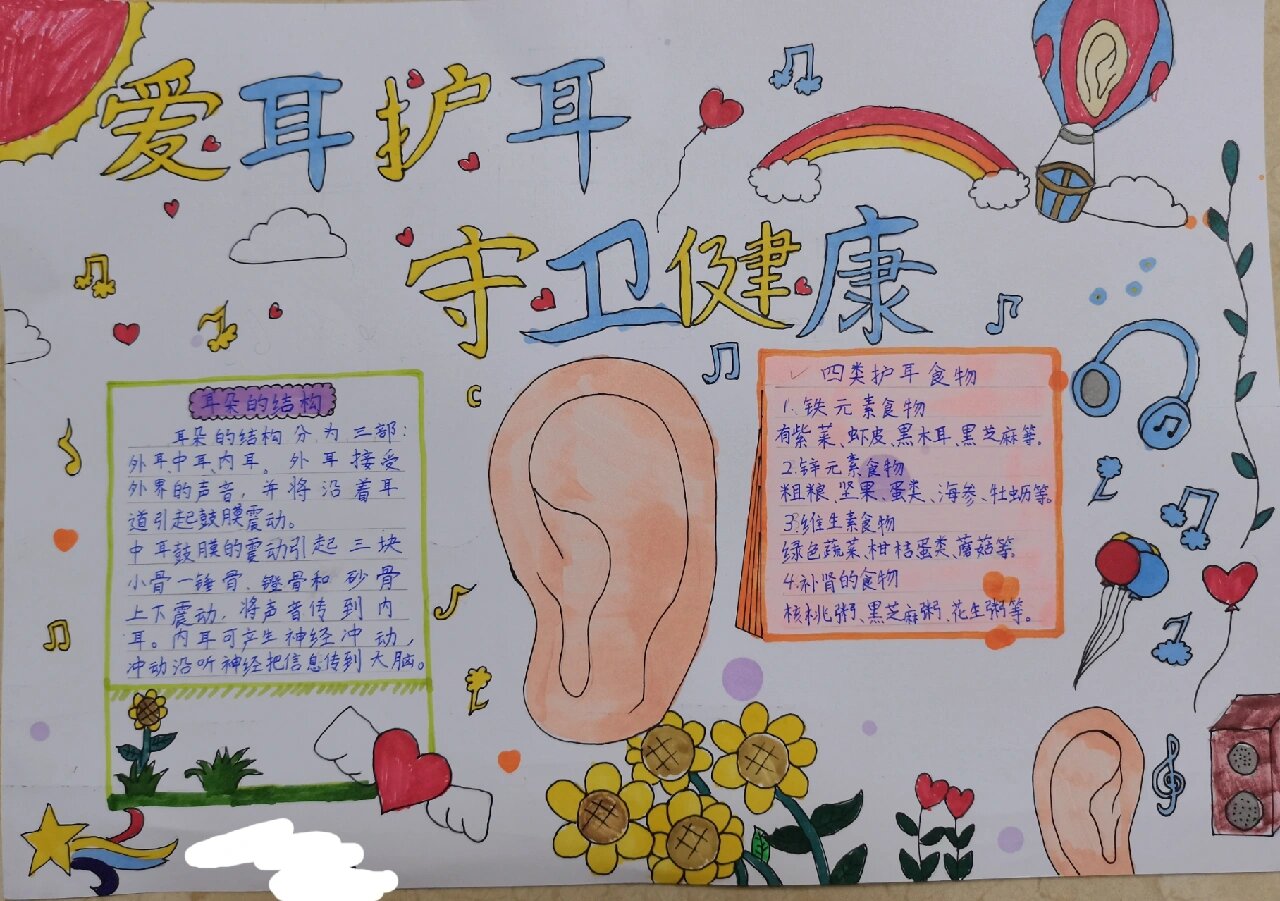 爱耳护耳
守卫健康
耳朵的结构
耳朵的结构分为三部:
外耳、中耳、内耳。外耳接受
外界的声音,并将沿着耳
道引起鼓膜震动。
中耳鼓膜的震动引起三块
小骨一锤骨、镫骨和砂骨
上下震动,将声音传到内
耳。内耳可产生神经冲动,
冲动沿听神经把信息传到大脑。
四类护耳食物
1.铁元素食物
有紫菜、虾皮、黑木耳、黑芝麻等。
2.锌元素食物
粗粮、坚果、蛋类、海参、牡蛎等。
3.维生素食物
绿色蔬菜、柑桔蛋类、蘑菇等。
4.补肾的食物
核桃粥、黑芝麻粥、花生粥等。